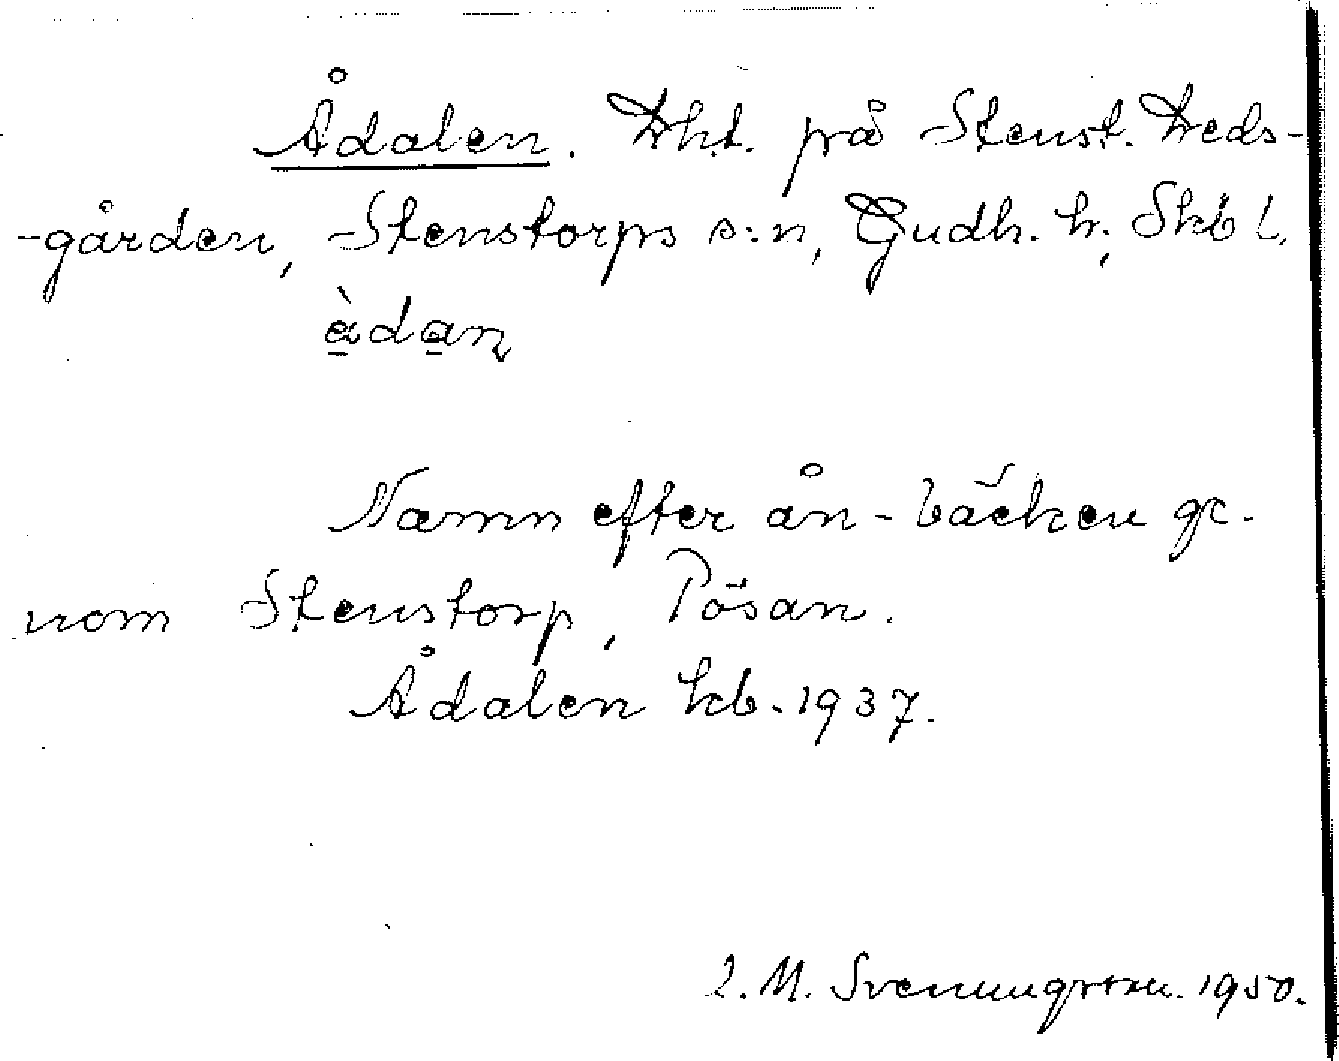 Ådalen. Lht. på Stenst. Leds-
-gården, Stenstorps s:n, Gudh. h; Skb l.
àdaṇ
Namn efter ån - bäcken ge-
nom Stenstorp, Pösan.
Ådalen kb. 1937.
L. M. Svenungsson. 1950.